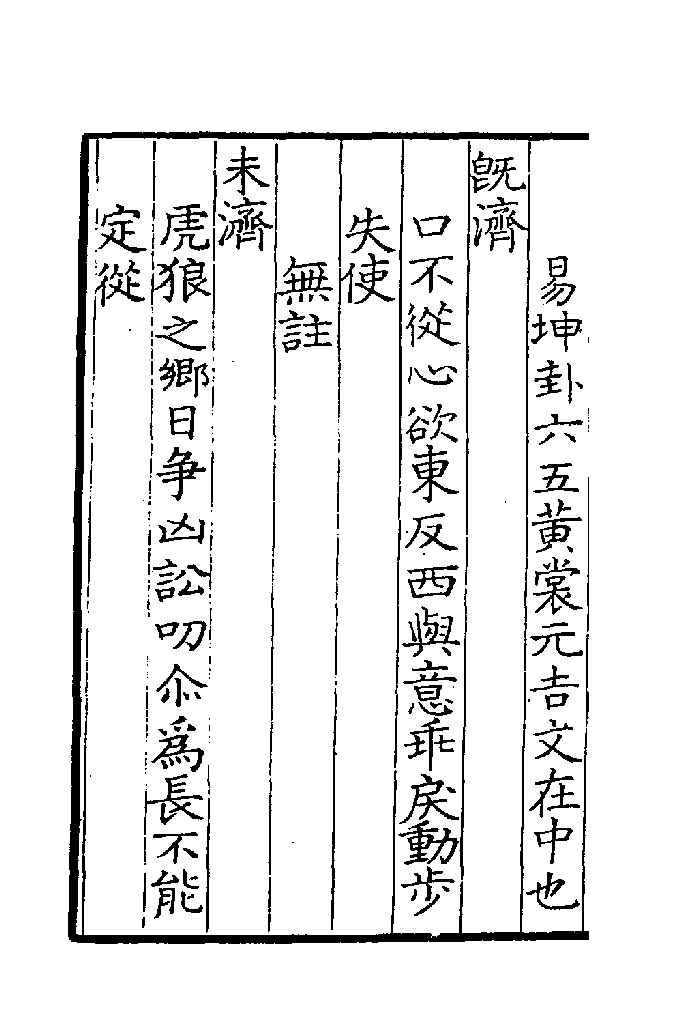 易坤卦六五黃裳元吉文在中也
旣濟
口不從心欲東反西與意乖戾動歩
失使
無註
未濟
虎狼之鄉日爭凶訟叨尒爲長不能
定從